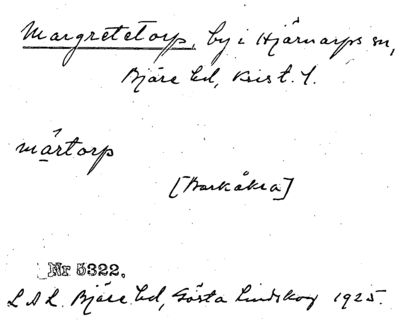 Margretetorp, by i Hjärnarps sn,
Bjäre hd, Krist. l.
mårtorp
[Barkåkra]
Nr 5322.
L A L. Bjäre hd, Gösta Lindskog 1925.